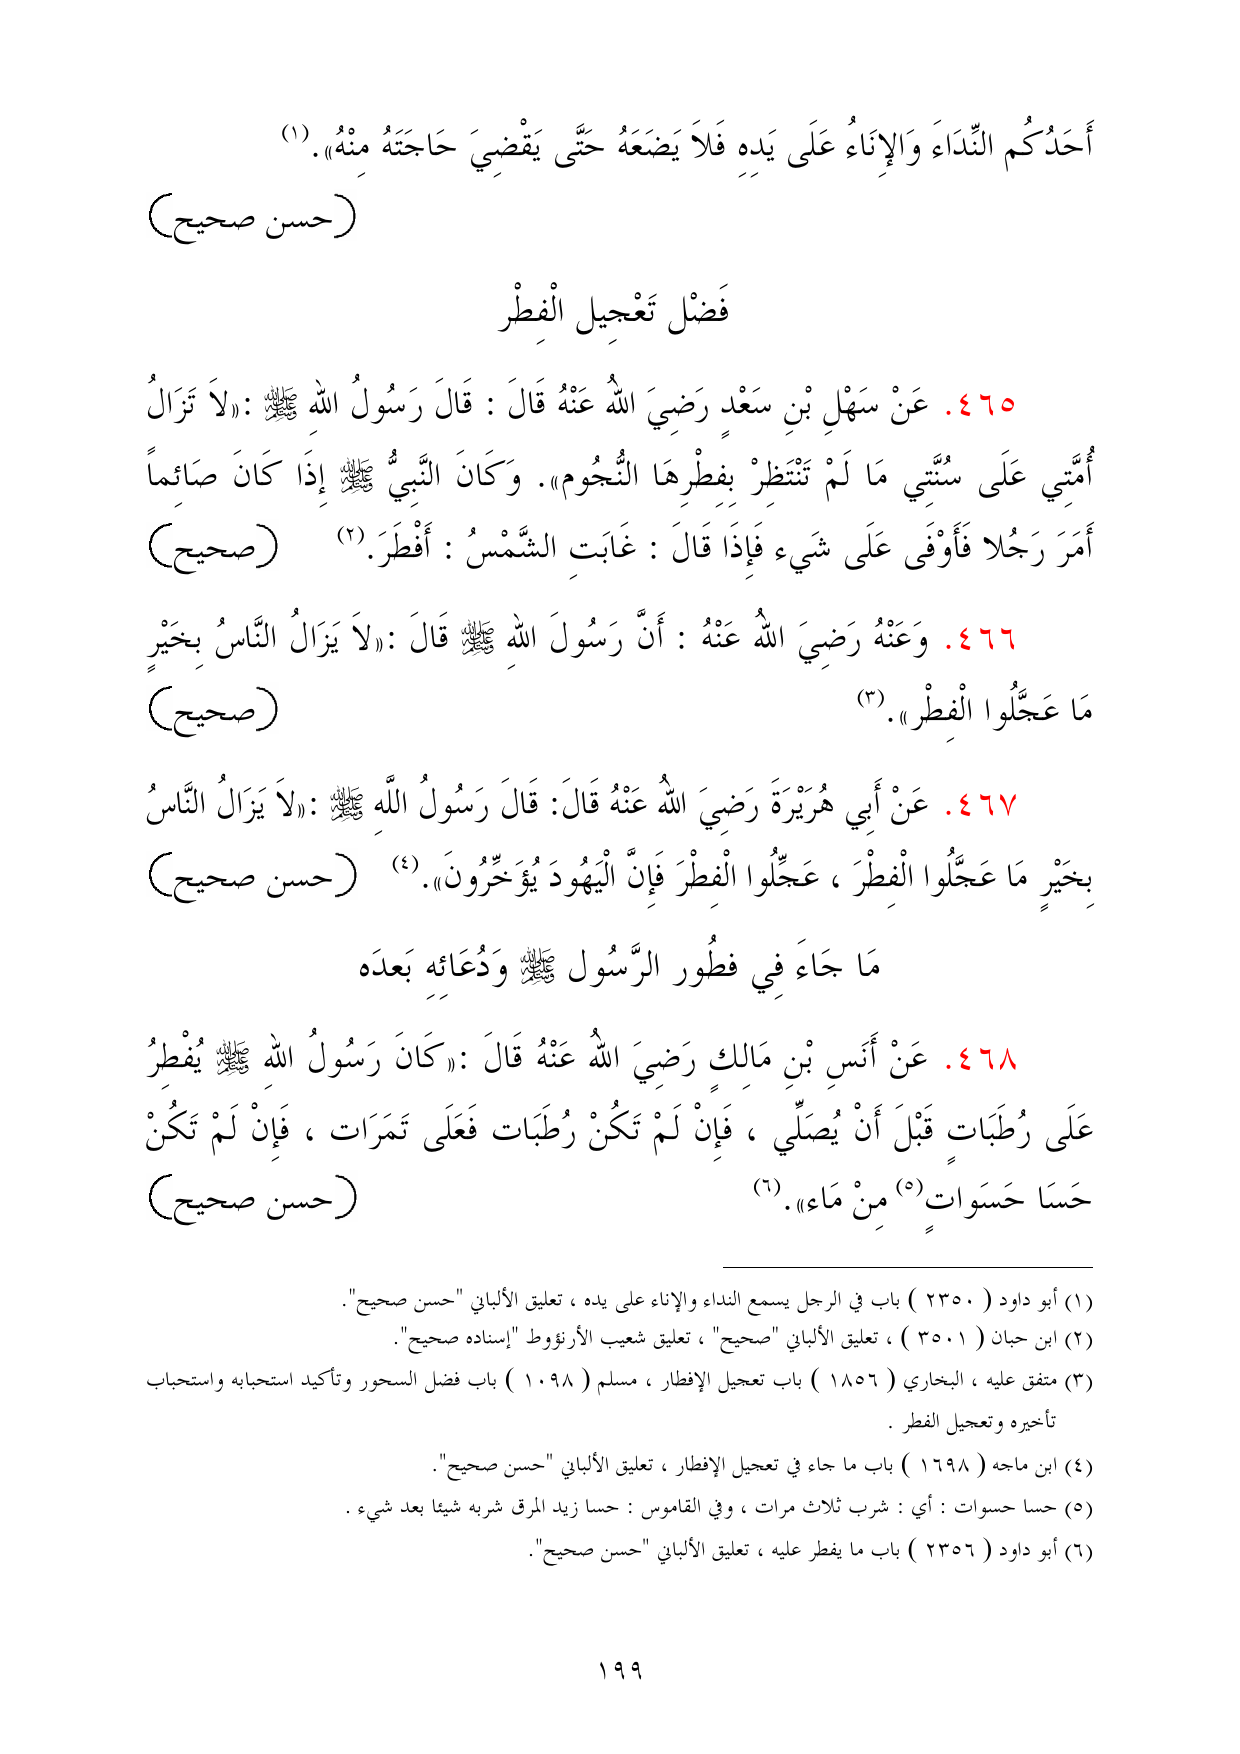 أَحَدُكُم النِّدَاءَ وَالإِنَاءُ عَلَى يَدِهِ فَلاَ يَضَعَهُ حَتَّى يَقْضِيَ حَاجَتَهُ مِنْهُ». (١)
(حسن صحيح)
فَضْل تَعْجِيل الْفِطْر
٤٦٥. عَنْ سَهْلِ بْنِ سَعْدٍ رَضِيَ اللهُ عَنْهُ قَالَ : قَالَ رَسُولُ اللهِ ﷺ :«لاَ تَزَالُ
أُمَّتِي عَلَى سُنَّتِي مَا لَمْ تَنْتَظِرْ بِفِطْرِهَا النُّجُوم». وَكَانَ النَّبِيُّ ﷺ إِذَا كَانَ صَائِماً
أَمَرَ رَجُلا فَأَوْفَى عَلَى شَيء فَإِذَا قَالَ : غَابَتِ الشَّمْسُ : أَفْطَرَ. (٢) (صحيح)
٤٦٦. وَعَنْهُ رَضِيَ اللهُ عَنْهُ : أَنَّ رَسُولَ اللهِ ﷺ قَالَ :«لاَ يَزَالُ النَّاسُ بِخَيْرٍ
مَا عَجَّلُوا الْفِطْر». (٣) (صحيح)
٤٦٧. عَنْ أَبِي هُرَيْرَةَ رَضِيَ اللهُ عَنْهُ قَالَ: قَالَ رَسُولُ اللَّهِ ﷺ :«لاَ يَزَالُ النَّاسُ
بِخَيْرٍ مَا عَجَّلُوا الْفِطْرَ ، عَجِّلُوا الْفِطْرَ فَإِنَّ الْيَهُودَ يُؤَخِّرُونَ». (٤) (حسن صحيح)
مَا جَاءَ فِي فطُور الرَّسُول ﷺ وَدُعَائِهِ بَعدَه
٤٦٨. عَنْ أَنَسِ بْنِ مَالِكٍ رَضِيَ اللهُ عَنْهُ قَالَ :«كَانَ رَسُولُ اللهِ ﷺ يُفْطِرُ
عَلَى رُطَبَاتٍ قَبْلَ أَنْ يُصَلِّي ، فَإِنْ لَمْ تَكُنْ رُطَبَات فَعَلَى تَمَرَات ، فَإِنْ لَمْ تَكُنْ
حَسَا حَسَوَاتٍ (٥) مِنْ مَاء». (٦) (حسن صحيح)
(١) أبو داود ( ٢٣٥٠ ) باب في الرجل يسمع النداء والإناء على يده ، تعليق الألباني "حسن صحيح".
(٢) ابن حبان ( ٣٥٠١ ) ، تعليق الألباني "صحيح" ، تعليق شعيب الأرنؤوط "إسناده صحيح".
(٣) متفق عليه ، البخاري ( ١٨٥٦ ) باب تعجيل الإفطار ، مسلم ( ١٠٩٨ ) باب فضل السحور وتأكيد استحبابه واستحباب
تأخيره وتعجيل الفطر .
(٤) ابن ماجه ( ١٦٩٨ ) باب ما جاء في تعجيل الإفطار ، تعليق الألباني "حسن صحيح".
(٥) حسا حسوات : أي : شرب ثلاث مرات ، وفي القاموس : حسا زيد المرق شربه شيئا بعد شيء .
(٦) أبو داود ( ٢٣٥٦ ) باب ما يفطر عليه ، تعليق الألباني "حسن صحيح".
١٩٩